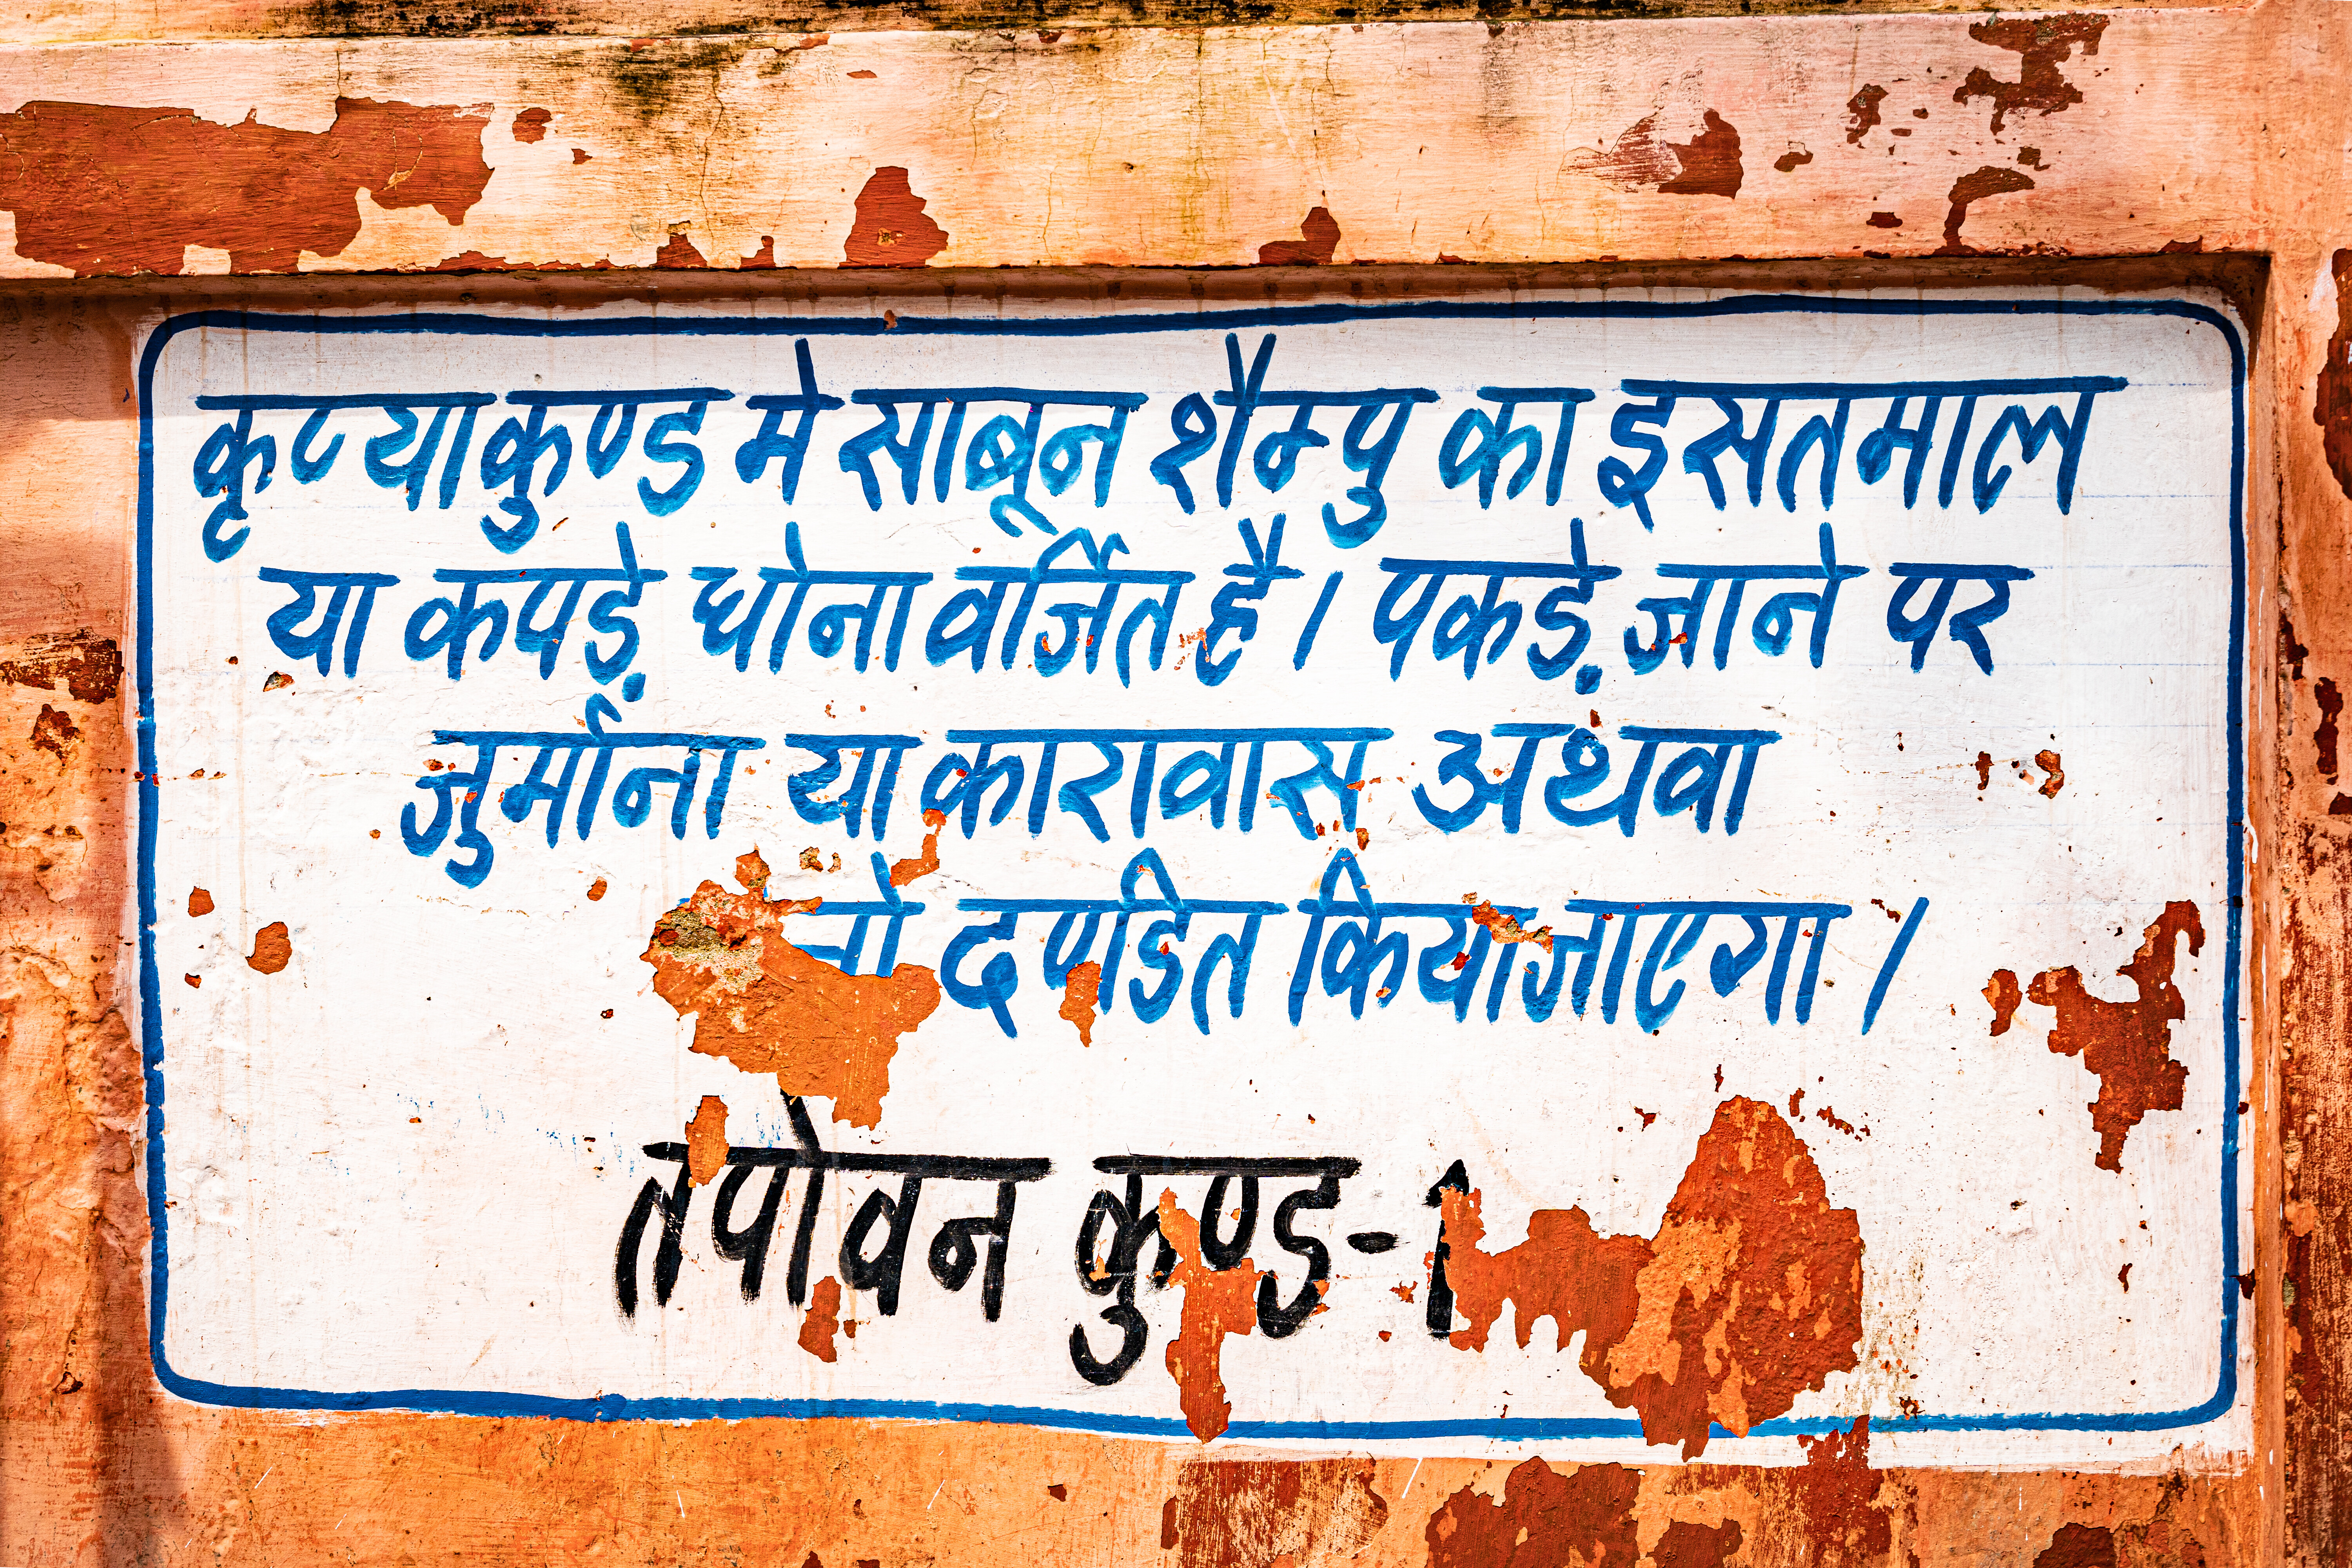 कृप्याकुण्ड मे साबून शैम्पु का इसतमाल
या कपड़े धोना वर्जित है। पकड़े जाने पर
जुर्माना या कारावास अथवा
दण्डित किया जाएगा।
तपोवन कुण्ड-1